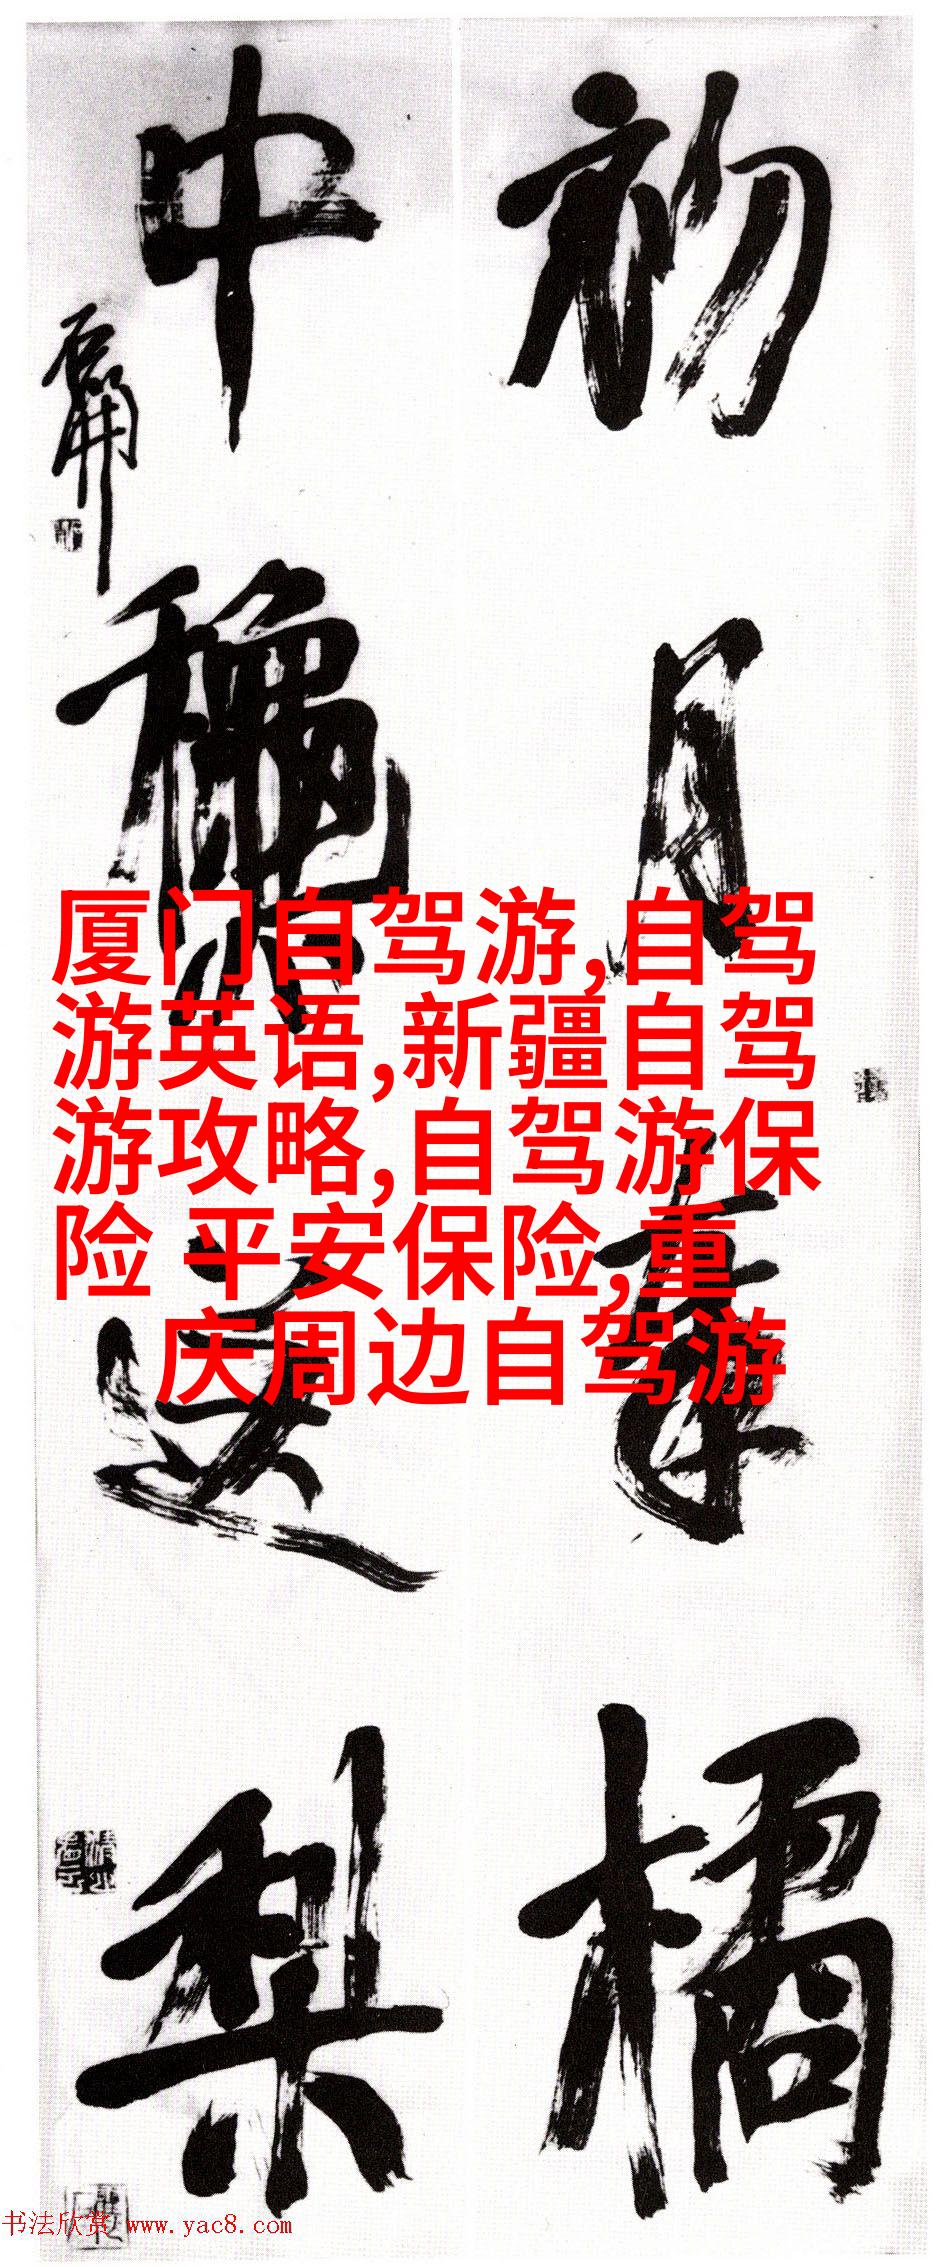 初月奉橘
中龝送梨
石開
厦门自驾游,自驾
游英语,新疆自驾
游攻略,自驾游保
险 平安保险,重
庆周边自驾游
书法欣赏 www.yac8.com